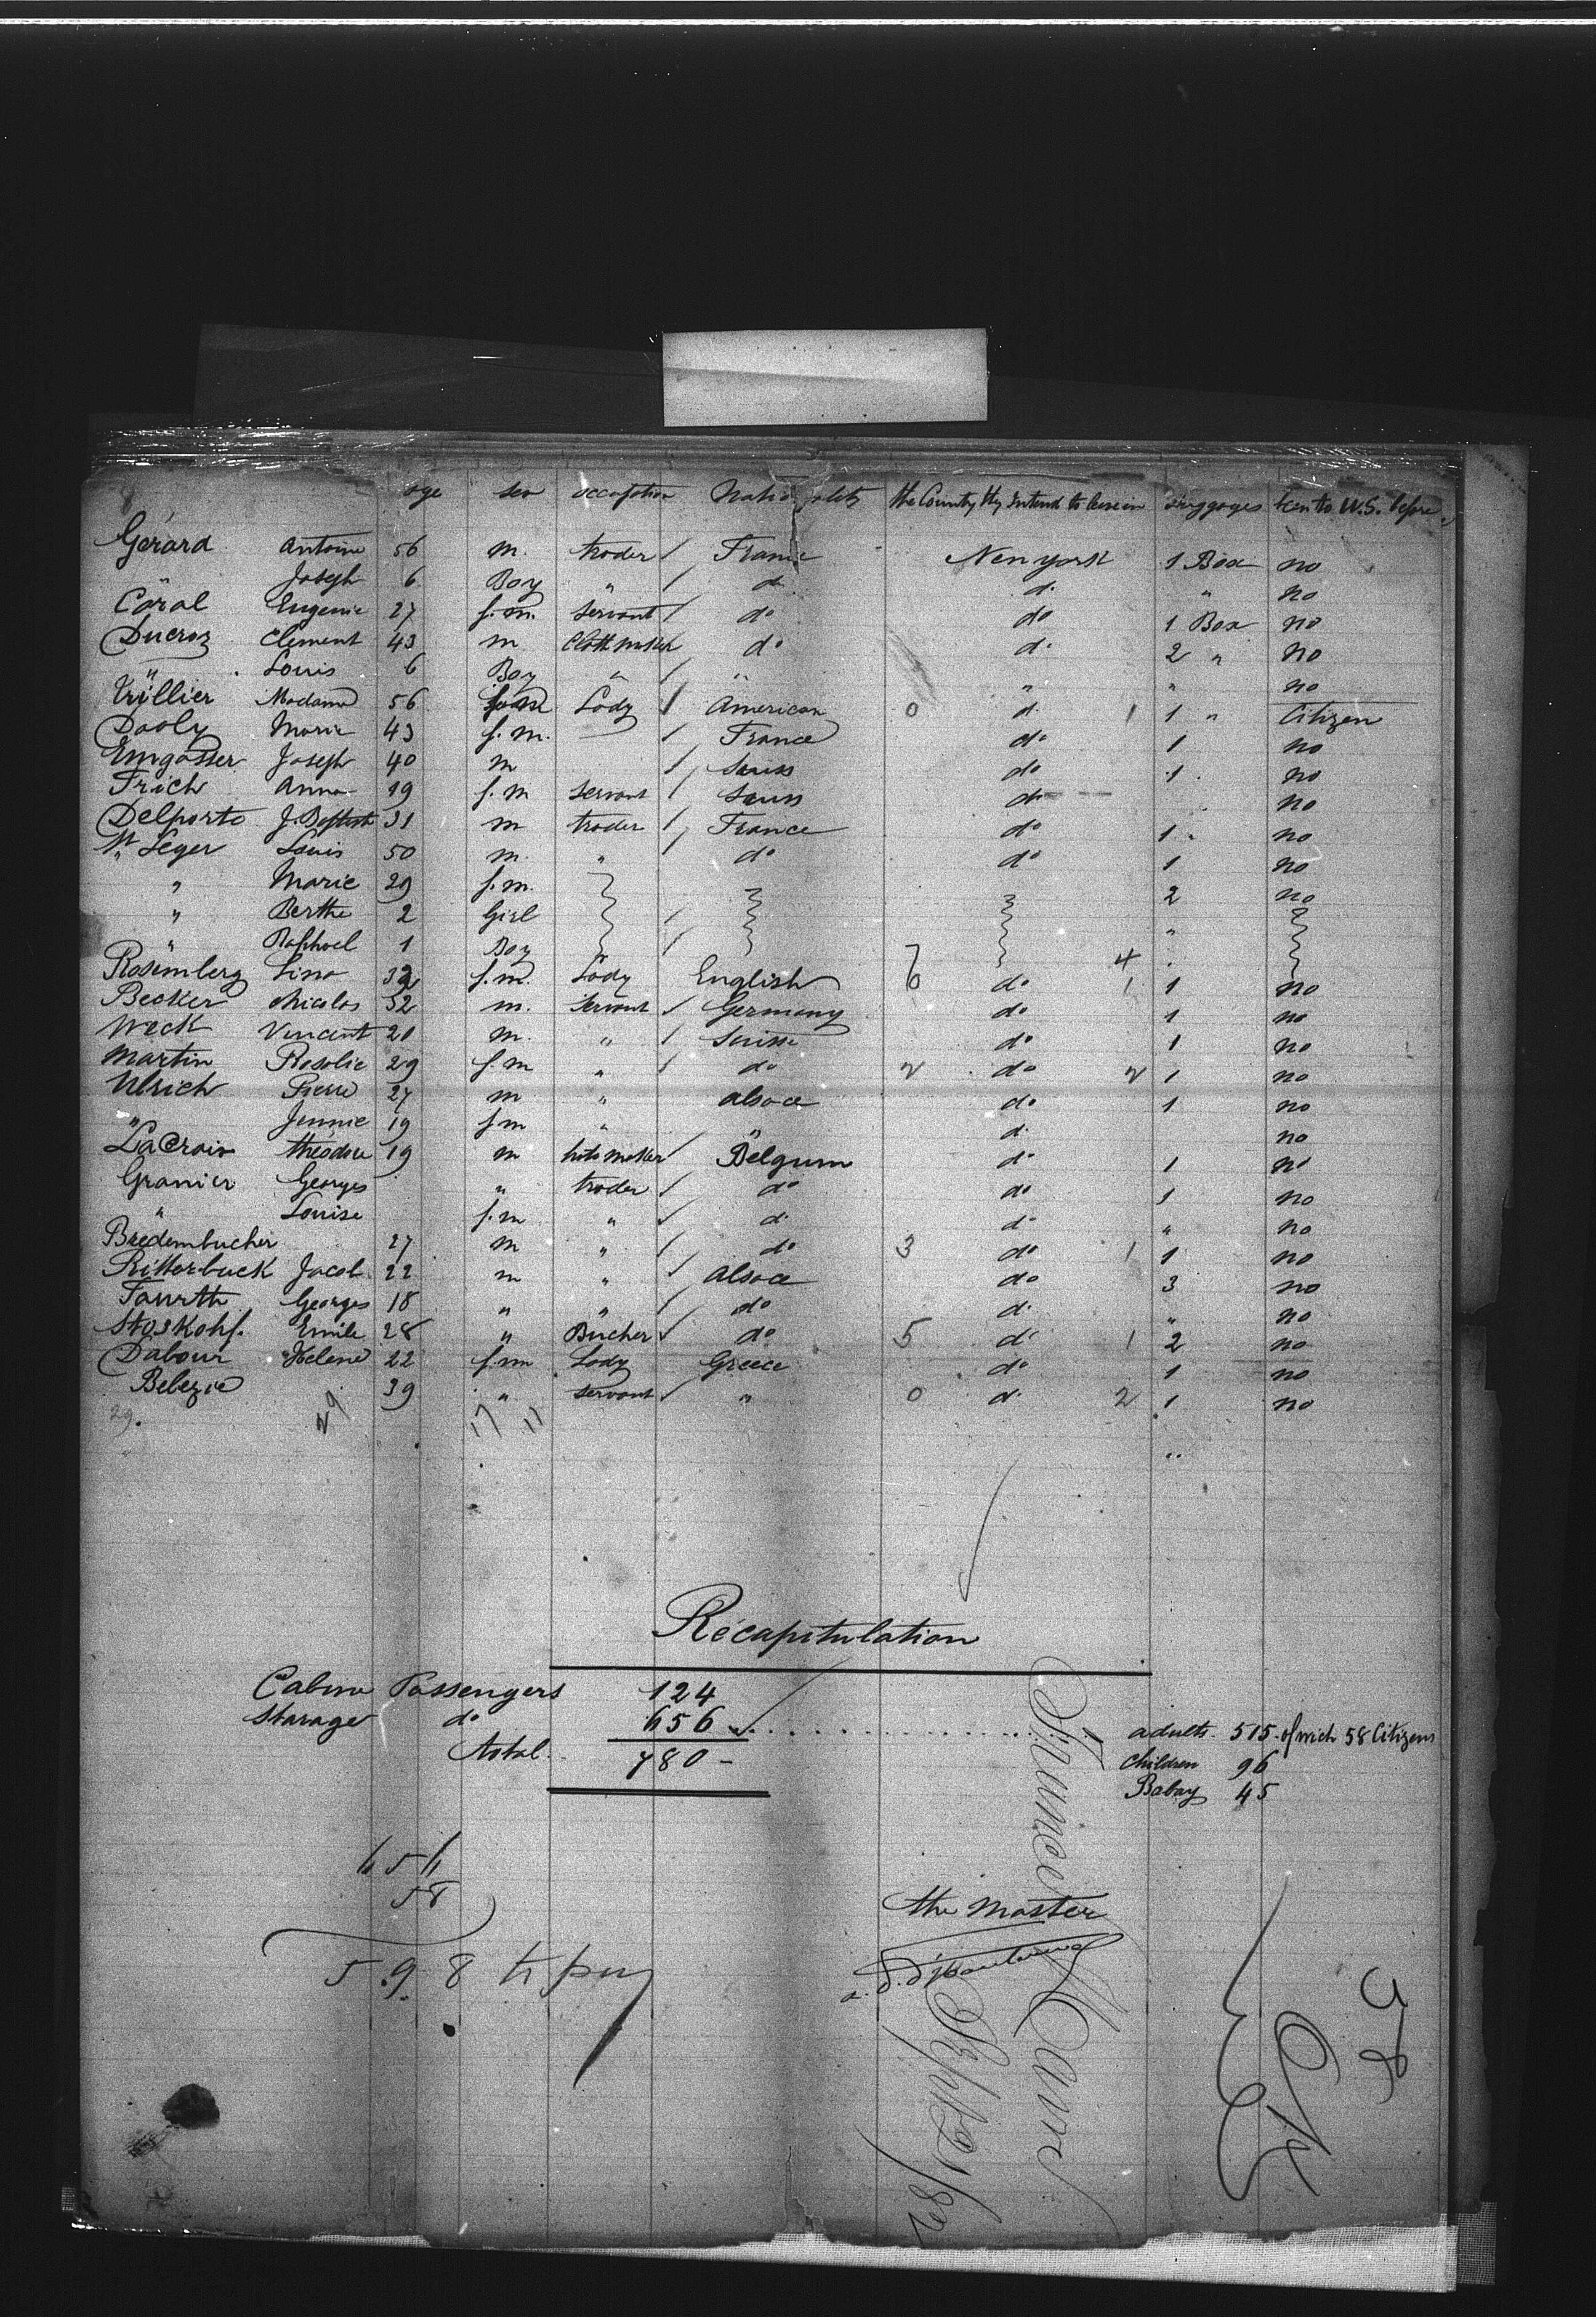 age sex occupation Nationality the County they intend to live in Baggages been to U.S. before
Gérard Antoine 56 m. trader France New york 1 Box no
Joseph 6 Boy " do d. " no
Caral Eugenie 27 f.m. Servant do do 1 Box no
Ducroz Clement 43 m Cloth maker do d. 2 " no
" Louis 6 Boy " " " " no
Madame 56 Lady American 0 d. 1 1 " Citizen
Dooly Marie 43 f.m. France do 1 no
Emgasser Joseph 40 m Suiss do 1. no
Frich Anna 19 f.m Servant Suiss do no
Delporte J. Baptist 31 m trader France do 1 " no
St Leger Louis 50 m. " do do 1 no
" Marie 29 f.m. 2 no
" Berthe 2 Girl "
" Raphael 1 Boy 4
Rosemberg Lina 32 f.m. Lady English 6 do 1 1 no
Becker Nicolas 32 m. Servant Germany do 1 no
Weck Vincent 20 m. " Suisse do 1 no
Martin Rosalie 29 f.m " do 2 do 2 1 no
Ulrich Pierre 27 m " alsace do 1 no
" Jennie 19 f.m " " d. no
LaCroix théodore 19 m hats maker Belgum do 1 no
Granier Georges " trader do do 1 no
" Louise f.m " d. d. " no
Bredembucher 27 m " do 3 do 1 1 no
Ritterbuck Jacob 22 m " Alsace do 3 no
Fourth Georges 18 " " do d. " no
Stoskohf. Emile 28 " Bucher do 5 d. 1 2 no
Dabour Helene 22 f.m Lady Greece do 1 no
Belezie 39 " servant " 0 d. 2 1 no
29. 29 17 11
Récapitulation
Cabine Passengers 124
Starage do 656 adults. 515 of wich 58 Citizens
total. 780 - Children 96
Babay 45
656
58
598 to pay
the Master
France
Havre
Sept 21/82
58
OK